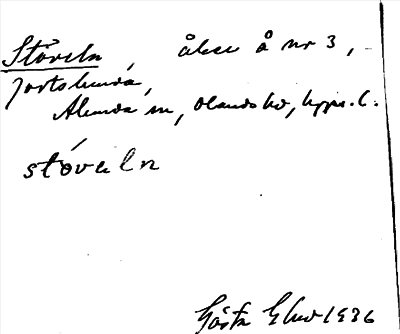 Stöveln, åker å nr 3,
Jortslunda,
Alunda sn, Olands hd, Upps. l.
stóveln
Gösta Elko 1936